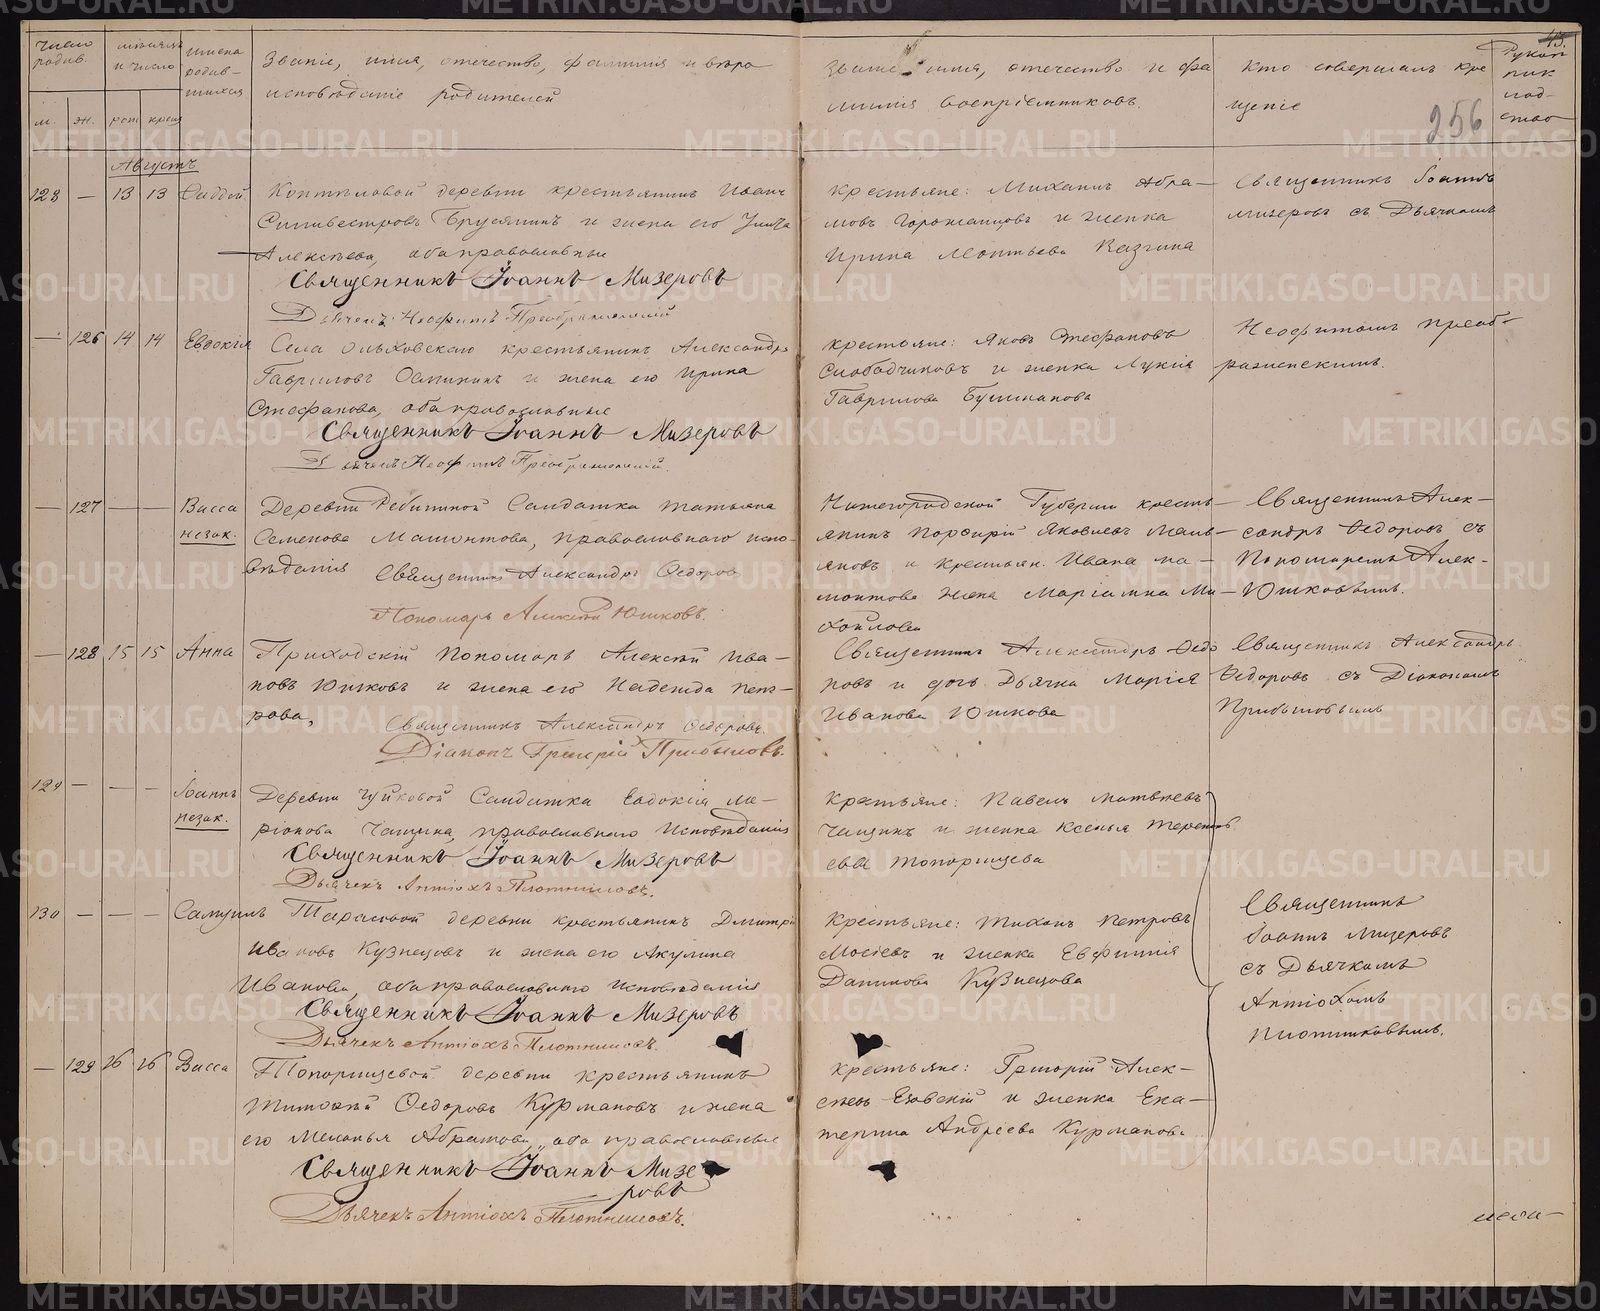 число родив.
мѣсяцъ и число
имена родив-шихся
Званіе, имя, отечество, фамилія и вѣро
исповѣданіе родителей
Званіе, имя, отечество и фа
милія воспріемниковъ.
Кто совершалъ кре
щеніе
Рукоп
рик
лод-
ство
м. ж. рож крещ
256
Августъ
128 — 13 13
деревни крестьянинъ Иванъ
Силивестровъ Бруснянинъ и жена его Улита
Алексѣева, оба православные
Священникъ Іоаннъ Мизеровъ
Дьячекъ Неофитъ Преображенскій
Крестьяне: Михаилъ Абра-
мовъ Горожанцовъ и женка
Ирина Леонтьева Казгина
Священникъ Іоаннъ
Мизеровъ съ Дьячкомъ
— 126 14 14 Евдокія
Села Ольховскаго крестьянинъ Александръ
Гавриловъ и жена его Ирина
Стефанова, оба православные
Священникъ Іоаннъ Мизеровъ
Дьячекъ Неофитъ Преображенскій.
крестьяне: Яковъ Стефановъ
Слободчиковъ и женка Лукія
Гаврилова Бушманова
Неофитомъ Преоб-
раженскимъ.
— 127 — — Васса
незак.
Деревни Солдатка Татьяна
Семенова Мамонтова, православнаго испо-
вѣданія Священникъ Александръ Ѳедоровъ
Пономарь Алексѣй Юшковъ.
Нижегородской Губерніи кресть-
янинъ Порфирій Яковлевъ
и крестьян. Ивана Ма-
монтова жена Маріамна Ми-
хайлова
Священникъ Алек-
сандръ Ѳедоровъ съ
Пономаремъ Алек.
Юшковымъ.
— 128 15 15 Анна
Приходскій Пономарь Алексѣй Ива-
новъ Юшковъ и жена его Надежда Пет-
рова,
Священникъ Александръ Ѳедоровъ.
Діаконъ Григорій Прибыловъ.
Священникъ Александръ Ѳедо
ровъ и дочь Дьячка Марія
Иванова Юшкова
Священникъ Александръ
Ѳедоровъ съ Діакономъ
Прибыловымъ
129 — — — Іоаннъ
незак.
Деревни Чуйковой Солдатка Евдокія Ла-
ріонова Чащина, православнаго Исповѣданія
Священникъ Іоаннъ Мизеровъ
Дьячекъ Антіохъ Плотниковъ.
Крестьяне: Павелъ Матвѣевъ
Чащинъ и женка Ксенья Терентьъ
ева Топорищева
130 — — — Самуилъ
Тарасовой деревни крестьянинъ Дмитрій
Ивановъ Кузнецовъ и жена его Акулина
Иванова, оба православнаго исповѣданія
Священникъ Іоаннъ Мизеровъ
Дьячекъ Антіохъ Плотниковъ.
Крестьяне: Тихонъ Петровъ
Мосѣевъ и женка Евфимія
Данилова Кузнецова
Священникъ
Іоаннъ Мизеровъ
съ Дьячкомъ
Антіохомъ
Плотниковымъ.
— 129 16 16 Васса
Топорищевой деревни крестьянинъ
Тимофей Ѳедоровъ Курмановъ и жена
его Меланья Абрамова, оба православные
Священникъ Іоаннъ Мизе
ровъ
Дьячекъ Антіохъ Плотниковъ.
крестьяне: Григорій Алек-
сѣевъ Езовскій и женка Ека-
терина Андреева Курманова
METRIKI.GASO-URAL.RU